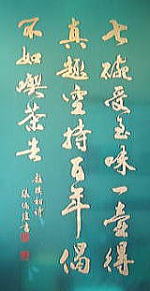 七碗受至味一壺得
真趣空持百千偈
不如喫茶去
趙樸初詩